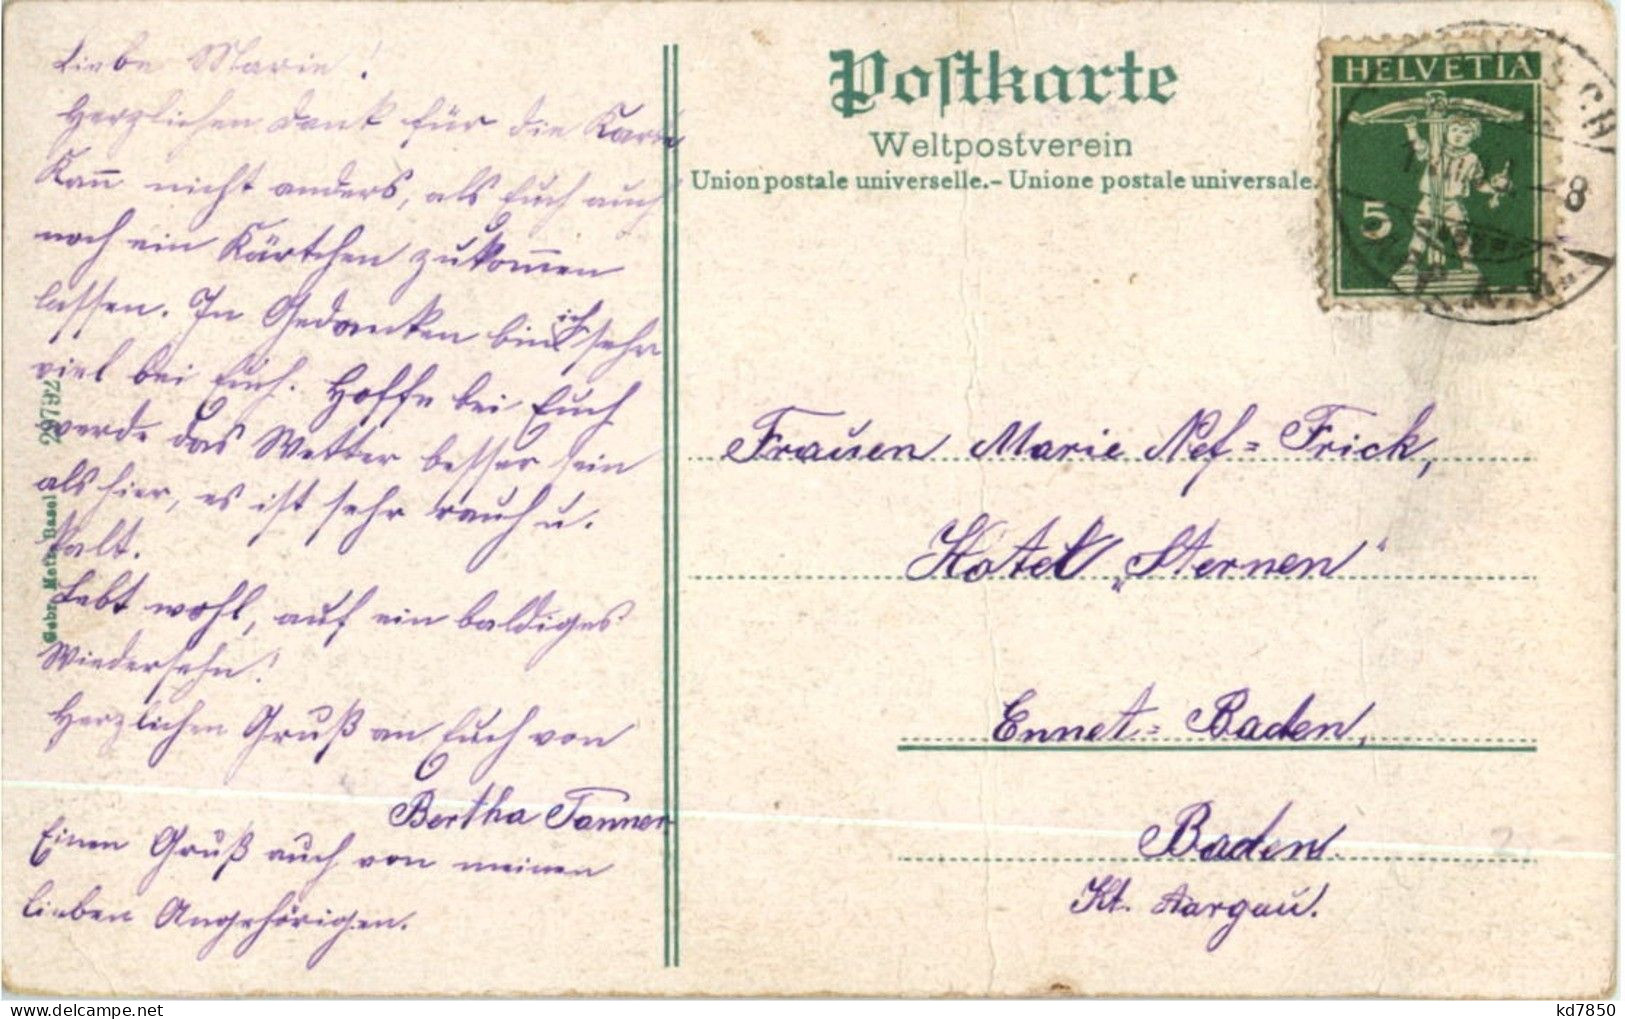 Liebe Marie!
Herzlichen Dank für die Karte
Kann nicht anders, als Euch auch
noch ein Kärtchen zukommen
lassen. In Gedanken bin ich sehr
viel bei Euch. Hoffe bei Euch
werde das Wetter besser sein
als hier, es ist sehr rauh u.
kalt.
Lebt wohl, auf ein baldiges
Wiedersehn!
Herzlichen Gruß an Euch von
Bertha Tanner
Einen Gruß auch von meinen
lieben Angehörigen.
Gebr. Metz, Basel 29792
Postkarte
Weltpostverein
Union postale universelle.- Unione postale universale.
HELVETIA
5
8
Frauen Marie Nef=Frick,
Hotel „Sternen"
Ennet=Baden,
Baden.
Kt. Aargau.
kd7850